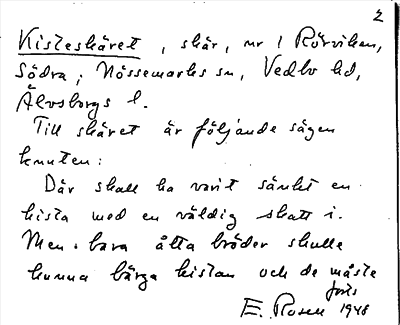 2
Kisteskäret, skär, nr 1 Rörviken,
Södra; Nössemarks sn, Vedbo hd,
Älvsborgs l.
Till skäret är följande sägen
knuten:
Där skall ha varit sänkt en
kista med en väldig skatt i.
Men bara åtta bröder skulle
kunna bärga kistan och de måste
forts
E. Rosell 1948